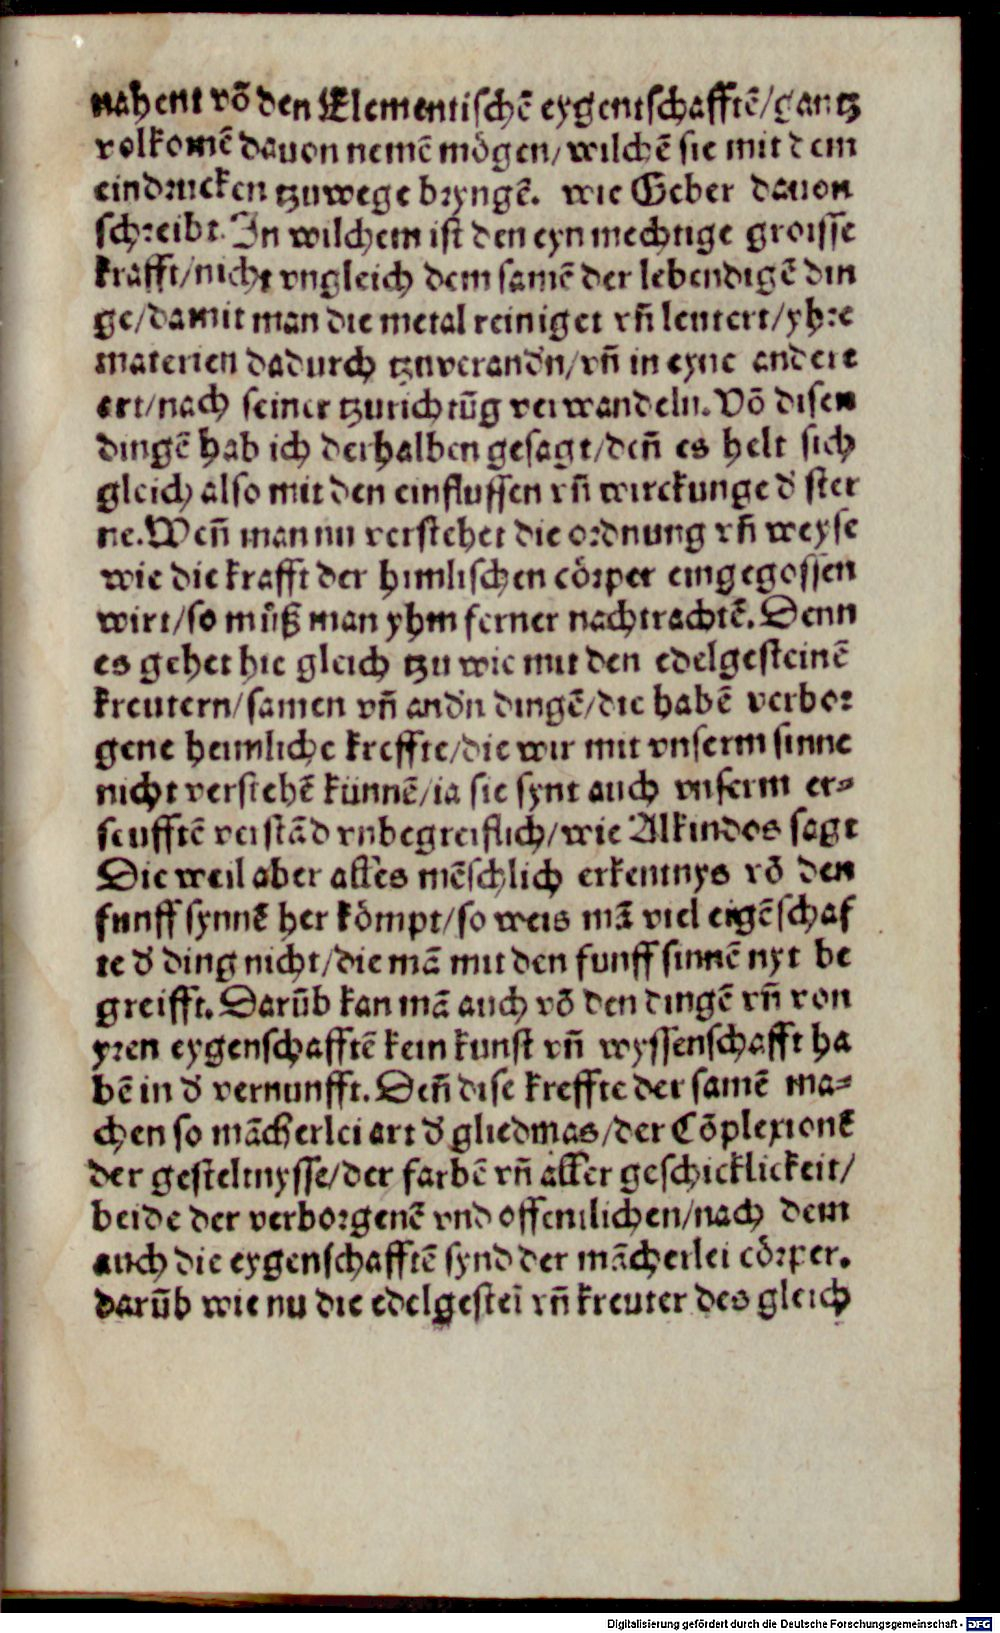 nahent võ den Elementischẽ eygentschafftẽ/gantz
volkomẽ dauon nemẽ mögen/wilchẽ sie mit dem
eindrucken tzuwege bryngẽ. wie Geber dauon
schreibt. In wilchem ist den eyn mechtige groisse
krafft/nicht vngleich dem samẽ der lebendigẽ din
ge/damit man die metal reiniget vñ leutert/yhre
materien dadurch tzuverandn̄/vñ in eyne andere
art/nach seiner tzurichtũg verwandeln. Võ disen
dingẽ hab ich derhalben gesagt/deñ es helt sich
gleich also mit den einflussen vñ wirckunge d̄ ster
ne. Weñ man nu verstehet die ordnung vñ weyse
wie die krafft der himlischen cörper eingegossen
wirt/so müß man yhm ferner nachtrachtẽ. Denn
es gehet hie gleich tzu wie mit den edelgesteinẽ
kreutern/samen vñ andn̄ dingẽ/die habẽ verbor
gene heimliche kreffte/die wir mit vnserm sinne
nicht verstehẽ künnẽ/ia sie synt auch vnserm er⸗
seufftẽ verstãd vnbegreiflich/wie Alkindos sagt
Die weil aber alles mẽschlich erkentnys võ den
funff synnẽ her kömpt/so weis mã viel eigẽschaf
te d̄ ding nicht/die mã mit den funff sinnẽ nyt be
greifft. Darũb kan mã auch võ den dingẽ vñ von
yren eygenschafftẽ kein kunst vñ wyssenschafft ha
bẽ in d̄ vernunfft. Deñ dise kreffte der samẽ ma⸗
chen so mãcherlei art d̄ gliedmas/der Cõplexionẽ
der gesteltnysse/der farbẽ vñ aller geschicklickeit/
beide der verborgenẽ vnd offentlichen/nach dem
auch die eygenschafftẽ synd der mãcherlei cörper.
darũb wie nu die edelgestei vñ kreuter des gleich
Digitalisierung gefördert durch die Deutsche Forschungsgemeinschaft - DFG